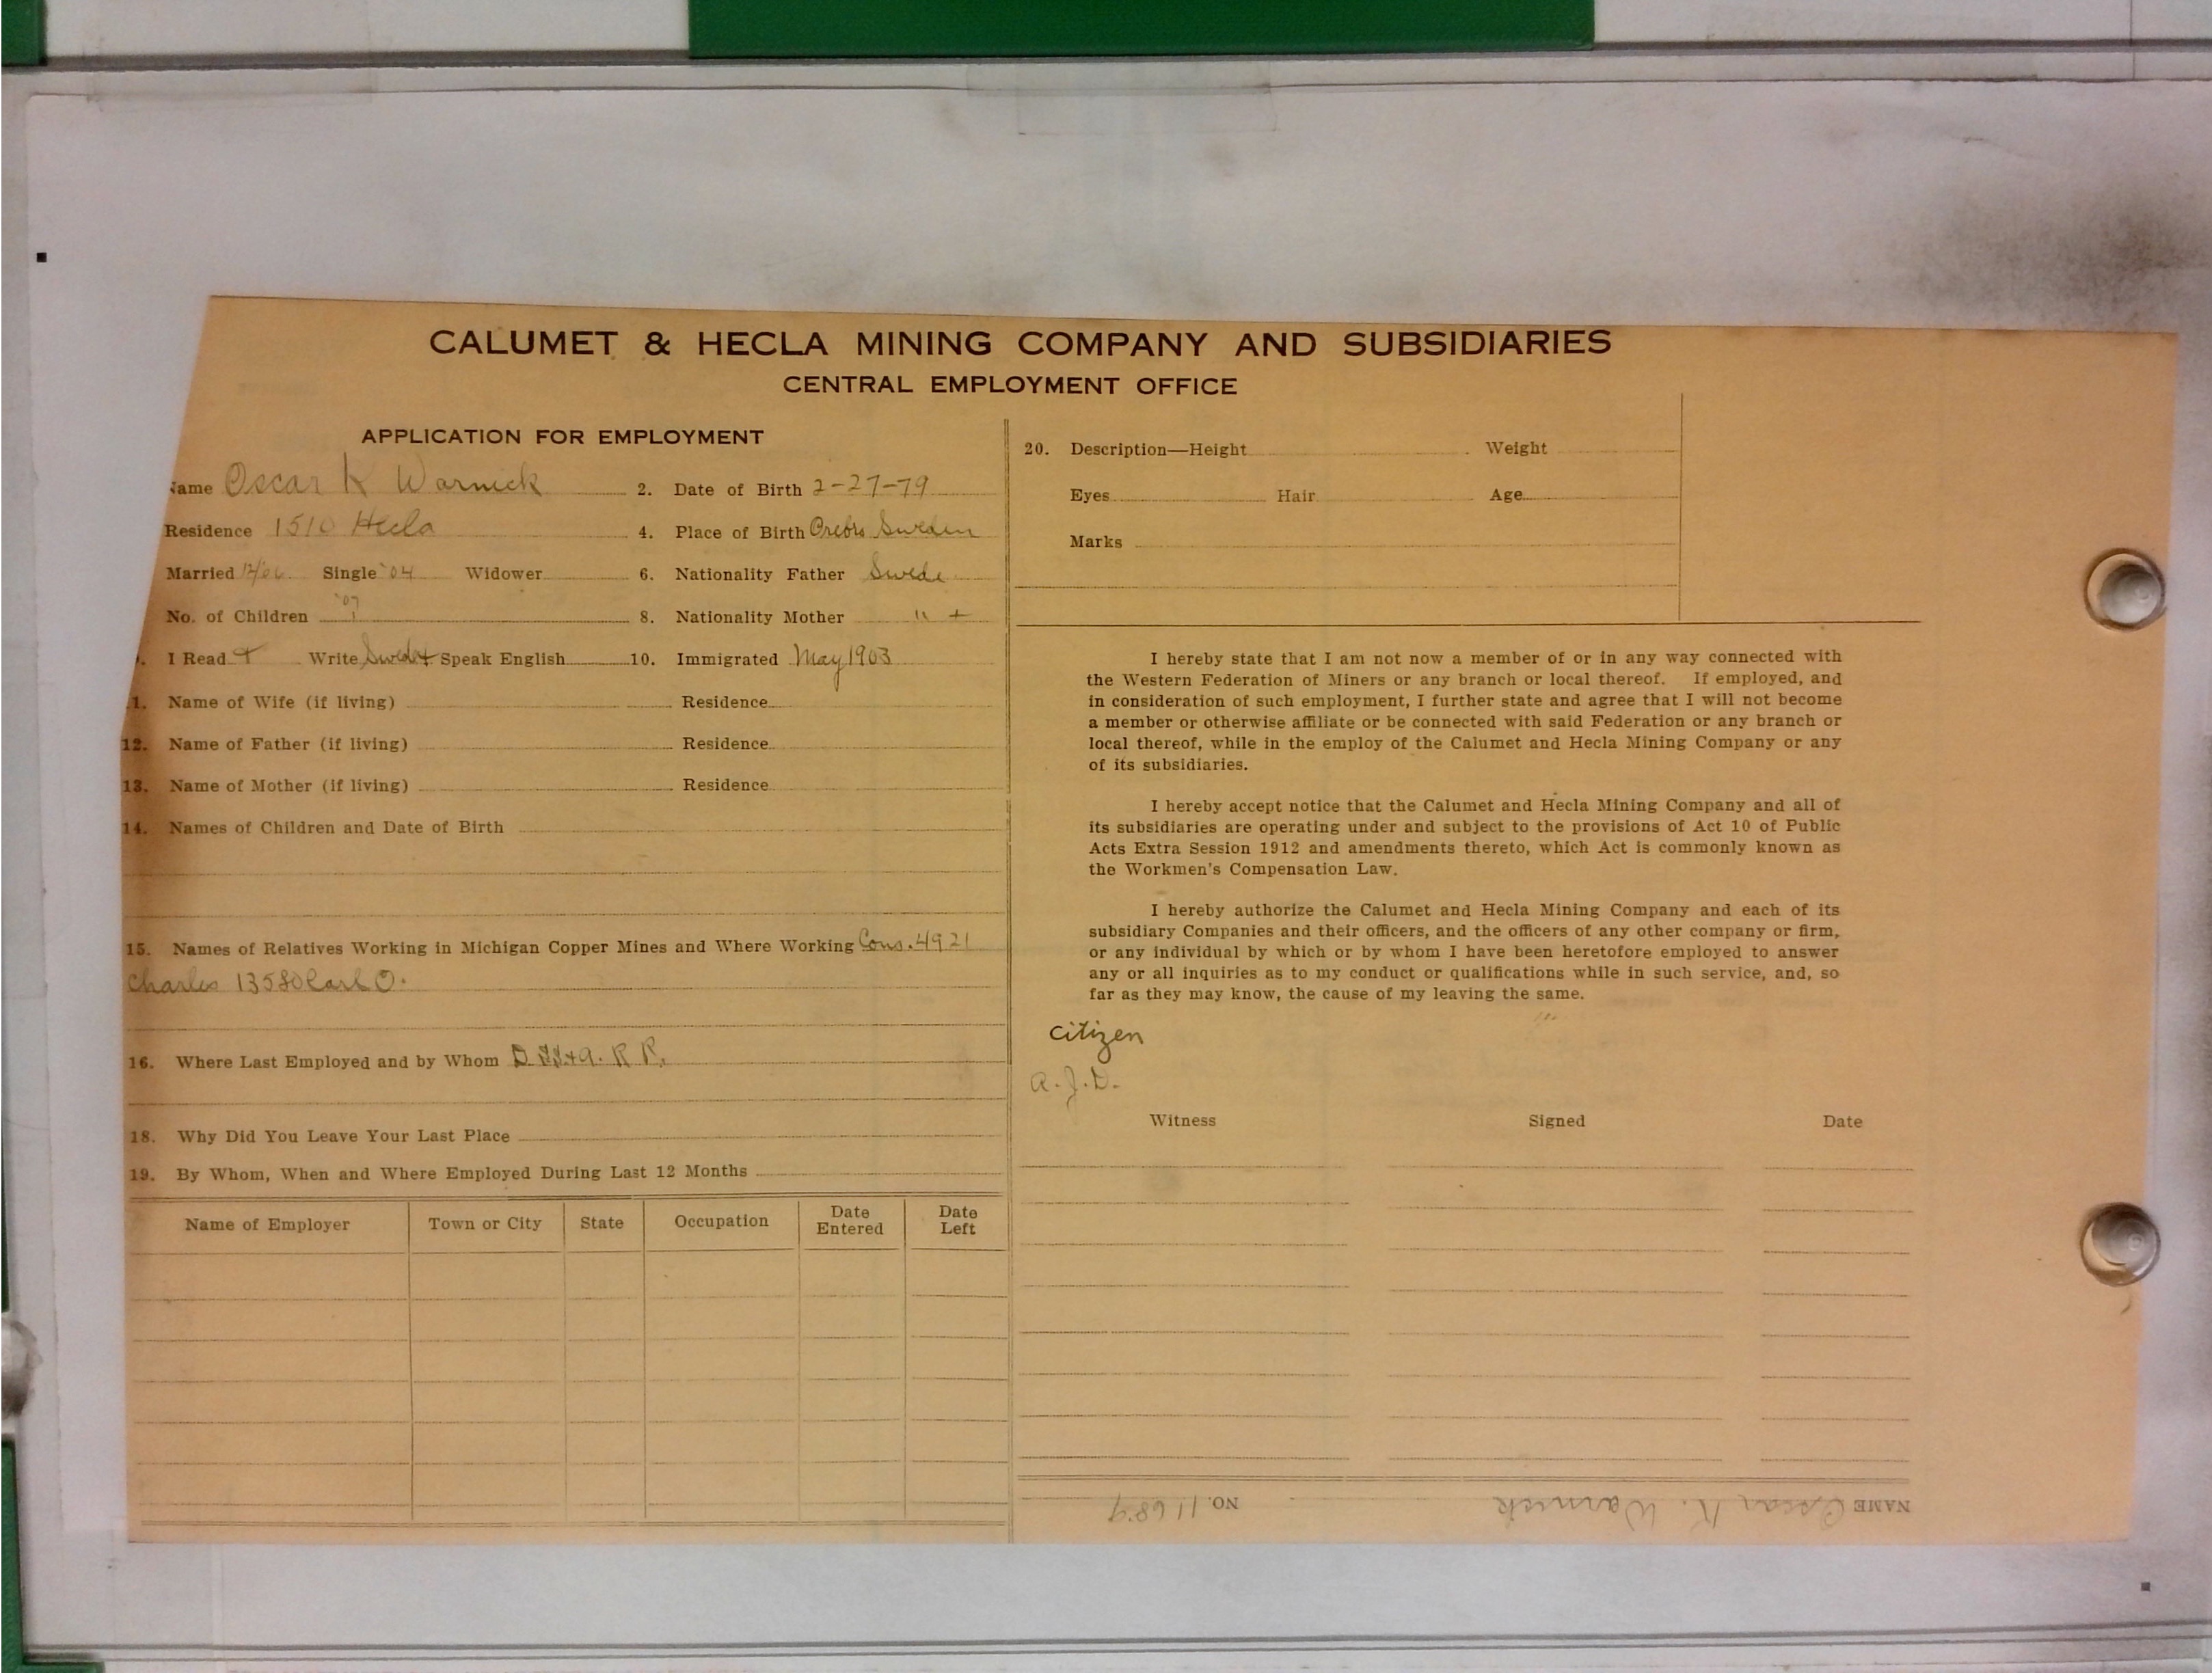 CALUMET & HECLA MINING COMPANY AND SUBSIDIARIES
CENTRAL EMPLOYMENT OFFICE
APPLICATION FOR EMPLOYMENT
Name Oscar K Warnick 2. Date of Birth 2-27-79
Residence 1510 Hecla 4. Place of Birth Orebro Sweden
Married 12/06 Single '04 Widower 6. Nationality Father Swede
'07
No. of Children 1 8. Nationality Mother " +
I Read + Write Swede + Speak English 10. Immigrated May 1903
1. Name of Wife (if living) Residence
12. Name of Father (if living) Residence
13. Name of Mother (if living) Residence
14. Names of Children and Date of Birth
15. Names of Relatives Working in Michigan Copper Mines and Where Working Cons. 4921
Charles 13580 Carl O.
16. Where Last Employed and by Whom D. SS+A. R R.
18. Why Did You Leave Your Last Place
19. By Whom, When and Where Employed During Last 12 Months
Name of Employer Town or City State Occupation Date Entered Date Left
20. Description—Height Weight
Eyes Hair Age
Marks
I hereby state that I am not now a member of or in any way connected with
the Western Federation of Miners or any branch or local thereof. If employed, and
in consideration of such employment, I further state and agree that I will not become
a member or otherwise affiliate or be connected with said Federation or any branch or
local thereof, while in the employ of the Calumet and Hecla Mining Company or any
of its subsidiaries.
I hereby accept notice that the Calumet and Hecla Mining Company and all of
its subsidiaries are operating under and subject to the provisions of Act 10 of Public
Acts Extra Session 1912 and amendments thereto, which Act is commonly known as
the Workmen's Compensation Law.
I hereby authorize the Calumet and Hecla Mining Company and each of its
subsidiary Companies and their officers, and the officers of any other company or firm,
or any individual by which or by whom I have been heretofore employed to answer
any or all inquiries as to my conduct or qualifications while in such service, and, so
far as they may know, the cause of my leaving the same.
Citizen
A. J. D.
Witness Signed Date
NAME Oscar K. Warnick NO. 11689